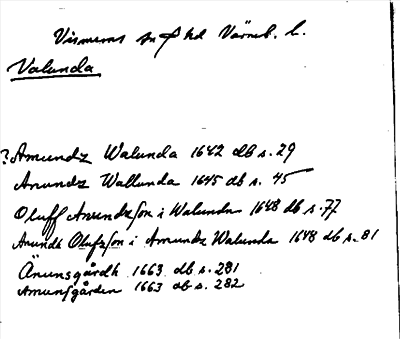 Visnums sn ⌀ hd Värml. l.
Valunda
? Amundz Walunda 1642 db s. 29
Anundz Wallunda 1645 db s. 45
Oluff Anundzson i Walunda 1648 db s. 77
Anundh Olufzson i Amundz Walunda 1648 db s. 81
Änunsgårdh 1663 db s. 281
Amunsgården 1663 db s. 282